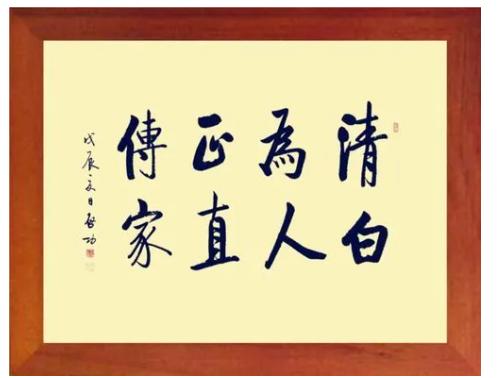 清白
為人
正直
傳家
戊辰夏日 啟功